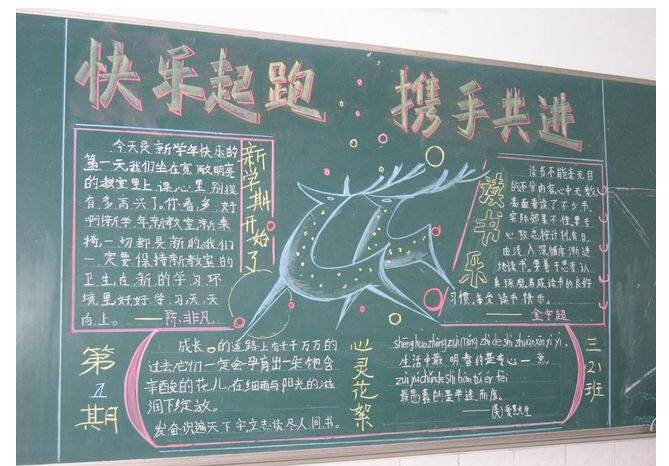 快乐起跑 携手共进
新学期开始了
今天是新学年快乐的
第一天,我们坐在宽敞明亮
的教室里上课,心里别提
有多高兴了。你看,多好
啊!新学年新教室新桌
椅,一切都是新的,我们
一定要保持新教室的
卫生,在新的学习环
境里好好学习,天天
向上。
——陈非凡
读书乐
读书不能漫无目
的不分内容,心中无数
表面看读了不少书,
实际效果不佳,要专
心致志按计划,
由浅入深循序渐进
地读书,要善于思考认
真琢磨,养成读书的良好
习惯,享受读书快乐。
——金宇超
第1期
成长的道路上有千千万万的
过去,它们一定会孕育出一朵饱含
辛酸的花儿,在细雨与阳光的滋
润下绽放。
发奋识遍天下字,立志读尽人间书。
心灵花絮
shēng huó zhōng zuì míng zhì de shì zhuān xīn yí yì,
生活中最明智的是专心一意,
zuì yú chǔn de shì bàn tú ér fèi
最愚蠢的是半途而废。
——(美)爱默生
三(2)班